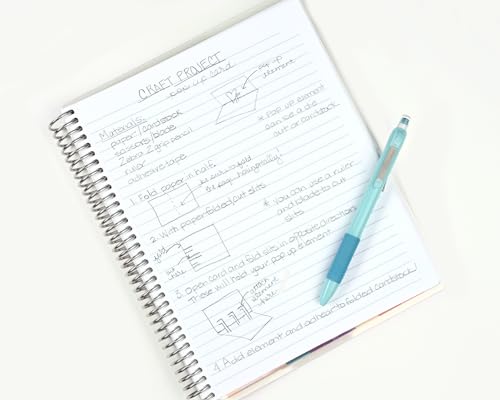 CRAFT PROJECT
pop up card
pop up
element
Materials:
paper/cardstock
scissors/blade
Zebra Z grip pencil
ruler
adhesive tape
* Pop up element
can be a die
cut or cardstock
1. Fold paper in half.
be sure to fold
horizontally!
* you can use a ruler
and blade to cut
slits
2. With paper folded, cut slits
fold
cut
lines
3. Open card and fold slits in opposite directions
These will hold your pop up element.
attach
element
here
4. Add element and adhear to folded cardstock